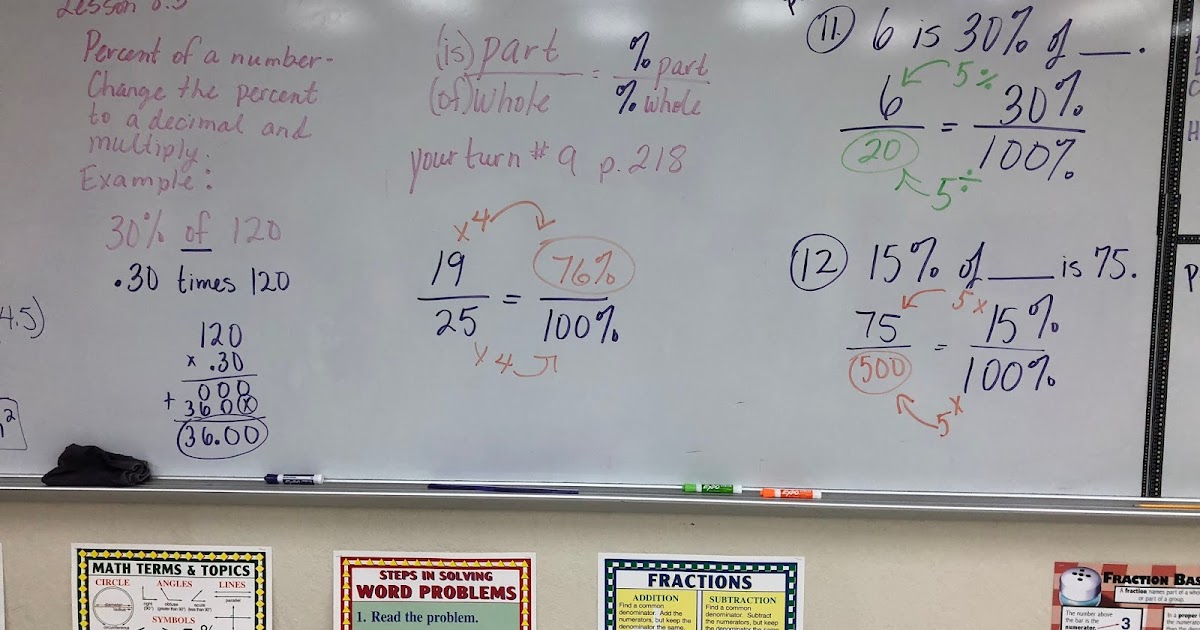 Lesson
Percent of a number-
Change the percent
to a decimal and
multiply.
Example:
30% of 120
.30 times 120
120
x .30
000
+ 360x
36.00
4.5)
2
(is) part = % part
(of) whole % whole
your turn # 9 p. 218
x4
19 = 76%
25 100%
x4
11. 6 is 30% of ___.
5 ÷
6 = 30%
20 100%
5 ÷
12 15% of ___ is 75.
5 x
75 = 15%
500 100%
5 x
EXPO
EXPO
MATH TERMS & TOPICS
CIRCLE ANGLES LINES
diameter
right obtuse acute
parallel
SYMBOLS
%
STEPS IN SOLVING
WORD PROBLEMS
1. Read the problem.
FRACTIONS
ADDITION
Find a common
denominator. Add the
numerators, but keep
the denominator the same.
SUBTRACTION
Find a common
denominator. Subtract
the numerators, but keep
the denominator the same.
FRACTION BAS
A fraction names part of a who
or part of a group.
The number above
the bar is the
numerator.
3
In a proper
the numerat